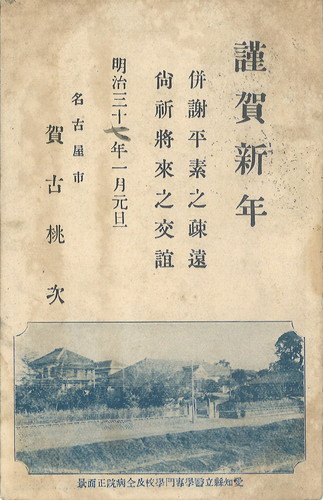 謹賀新年
併謝平素之疎遠
尙祈將來之交誼
明治三十七年一月元旦
名古屋市
賀古桃次
愛知縣立醫學專門學校及仝病院正面景